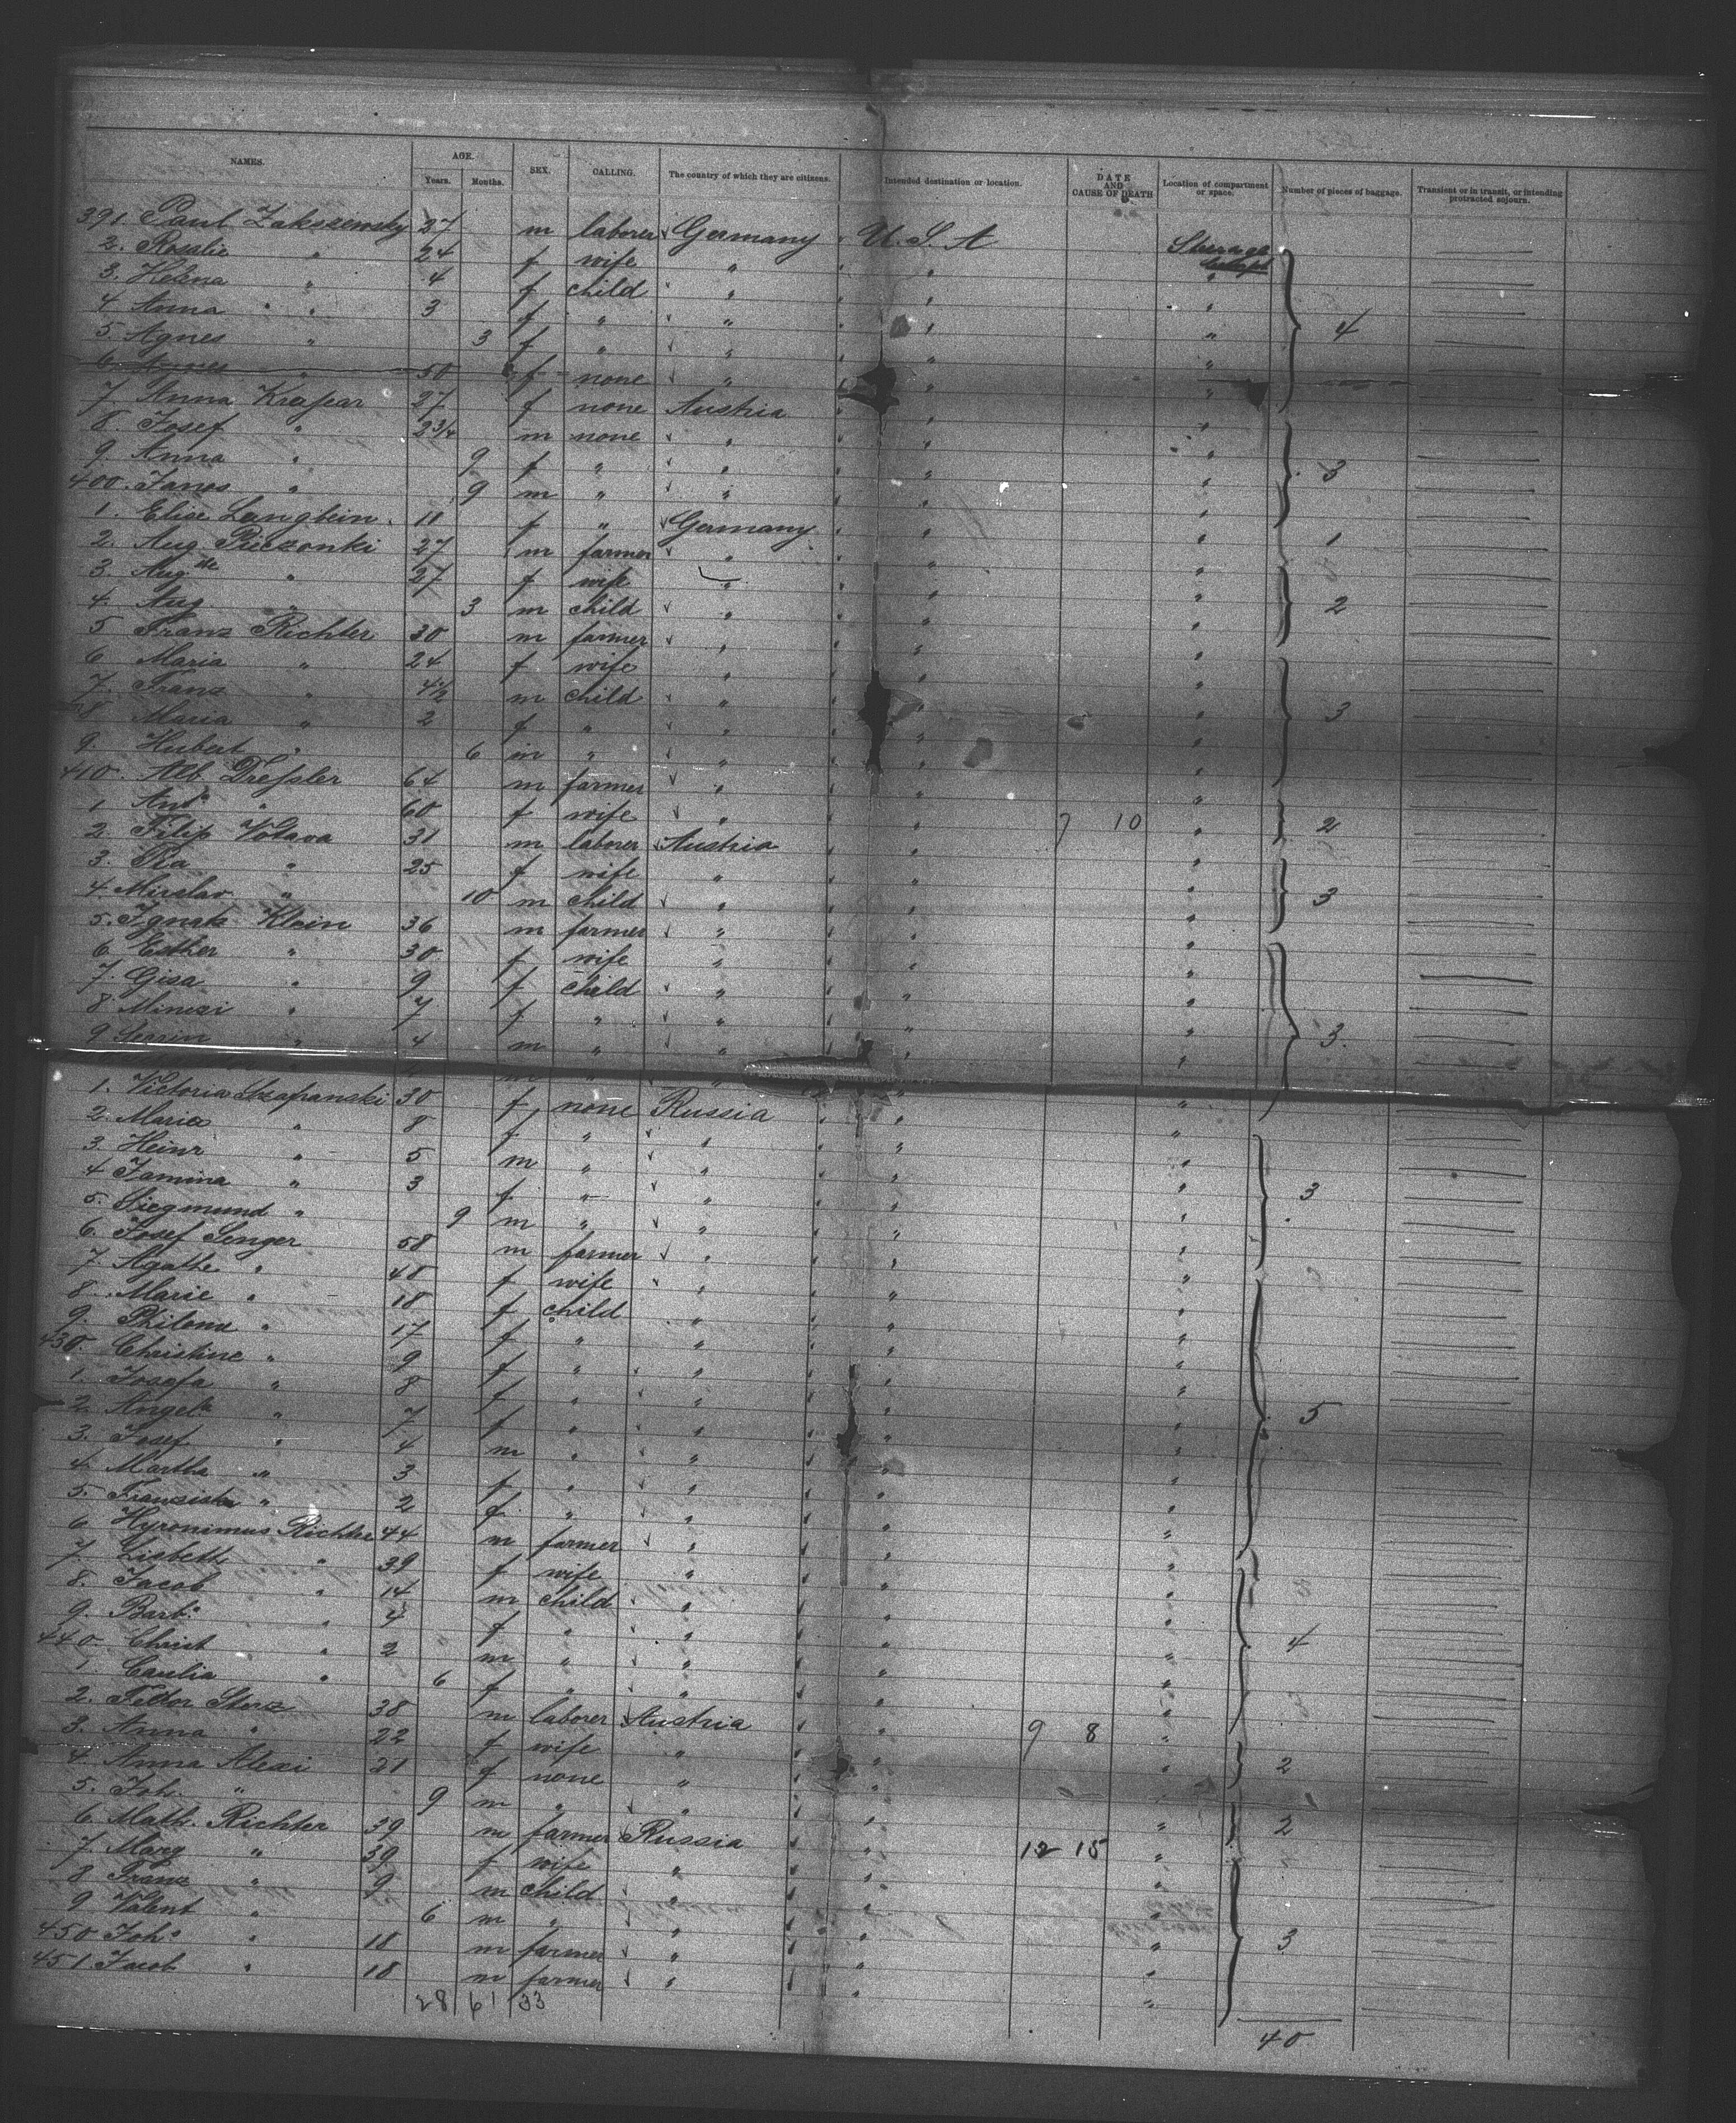 NAMES. AGE. SEX. CALLING. The country of which they are citizens. Intended destination or location. DATE AND CAUSE OF DEATH Location of compartment or space. Number of pieces of baggage. Transient or in transit, or intending protracted sojourn.
Years. Months.
391. Paul Zakszewsky 27 m laborer Germany U. S. A Steerage
2. Rosalie " 24 f wife " "
3. Helena " 4 f child " " "
4 Anna " 3 f " " " " 4
5. Agnes " 3 f " " " "
6. Agnes " 50 f none " " "
7. Anna Kraspar 27 f none Austria " "
8. Josef " 2 3/4 m none " " "
9. Anna " 9 f " " " " 3
400. Janos " 9 m " " " "
1. Elise Langbein. 11 f " Germany " " 1
2. Aug Pieczonki 27 m farmer " " "
3. Augste " 27 f wife " " " 2
4. Aug " 3 m child " " "
5 Franz Richter 30 m farmer " " "
6 Maria " 24 f wife " " "
7. Franz " 4 1/2 m child " " " 3
8 Maria " 2 f " " " "
9. Hubert " 6 m " " " "
410. Alb. Dressler 64 m farmer " " "
1 Anta " 60 f wife " " 7 10 " 2
2 Filip Votava 31 m laborer Austria " "
3. Ka " 25 f wife " " " 3
4. Miroslav " 10 m child " " "
5. Ignatz Klein 36 m farmer " " "
6 Esther " 30 f wife " " "
7. Gisa " 9 f child " " "
8 Minczi " 7 f " " " "
9 " 4 m " " " " 3.
1. Victoria Szafranski 30 f none Russia " "
2. Maria " 8 f " " " "
3. Heinr " 5 m " " " "
4 Jamina " 3 f " " " " 3
5. Siegmund " 9 m " " " "
6. Josef Senger 58 m farmer " " "
7. Agathe " 48 f wife " " "
8. Marie " 18 f child " " "
9. Philona " 17 f " " " "
430. Christine " 9 f " " " "
1. Josefa " 8 f " " " "
2. Angela " 7 f " " " " 5
3. Josef " 4 m " " " "
4. Martha " 3 f " " " "
5. Franziska " 2 f " " " "
6 Hyronimus Richter 44 m farmer " " "
7. Lisbeth " 39 f wife " " "
8. Jacob " 14 m child " " "
9. Barba " 4 f " " " "
440 Christ " 2 m " " " " 4
1. " 6 f " " " "
2. Storz 38 m laborer Austria " "
3. Anna " 22 f wife " " 9 8 "
4. Anna Alexi 21 f none " " " 2
5. Joh. " 9 m " " " "
6 Math. Richter 39 m farmer Russia " " 2
7. Marg " 39 f wife " " 12 15 "
8 Franz " 9 m child " " "
9 Valent " 6 m " " " "
450 Joha " 18 m farmer " " " 3
451. Jacob " 18 m farmer " " "
28 61 33
40